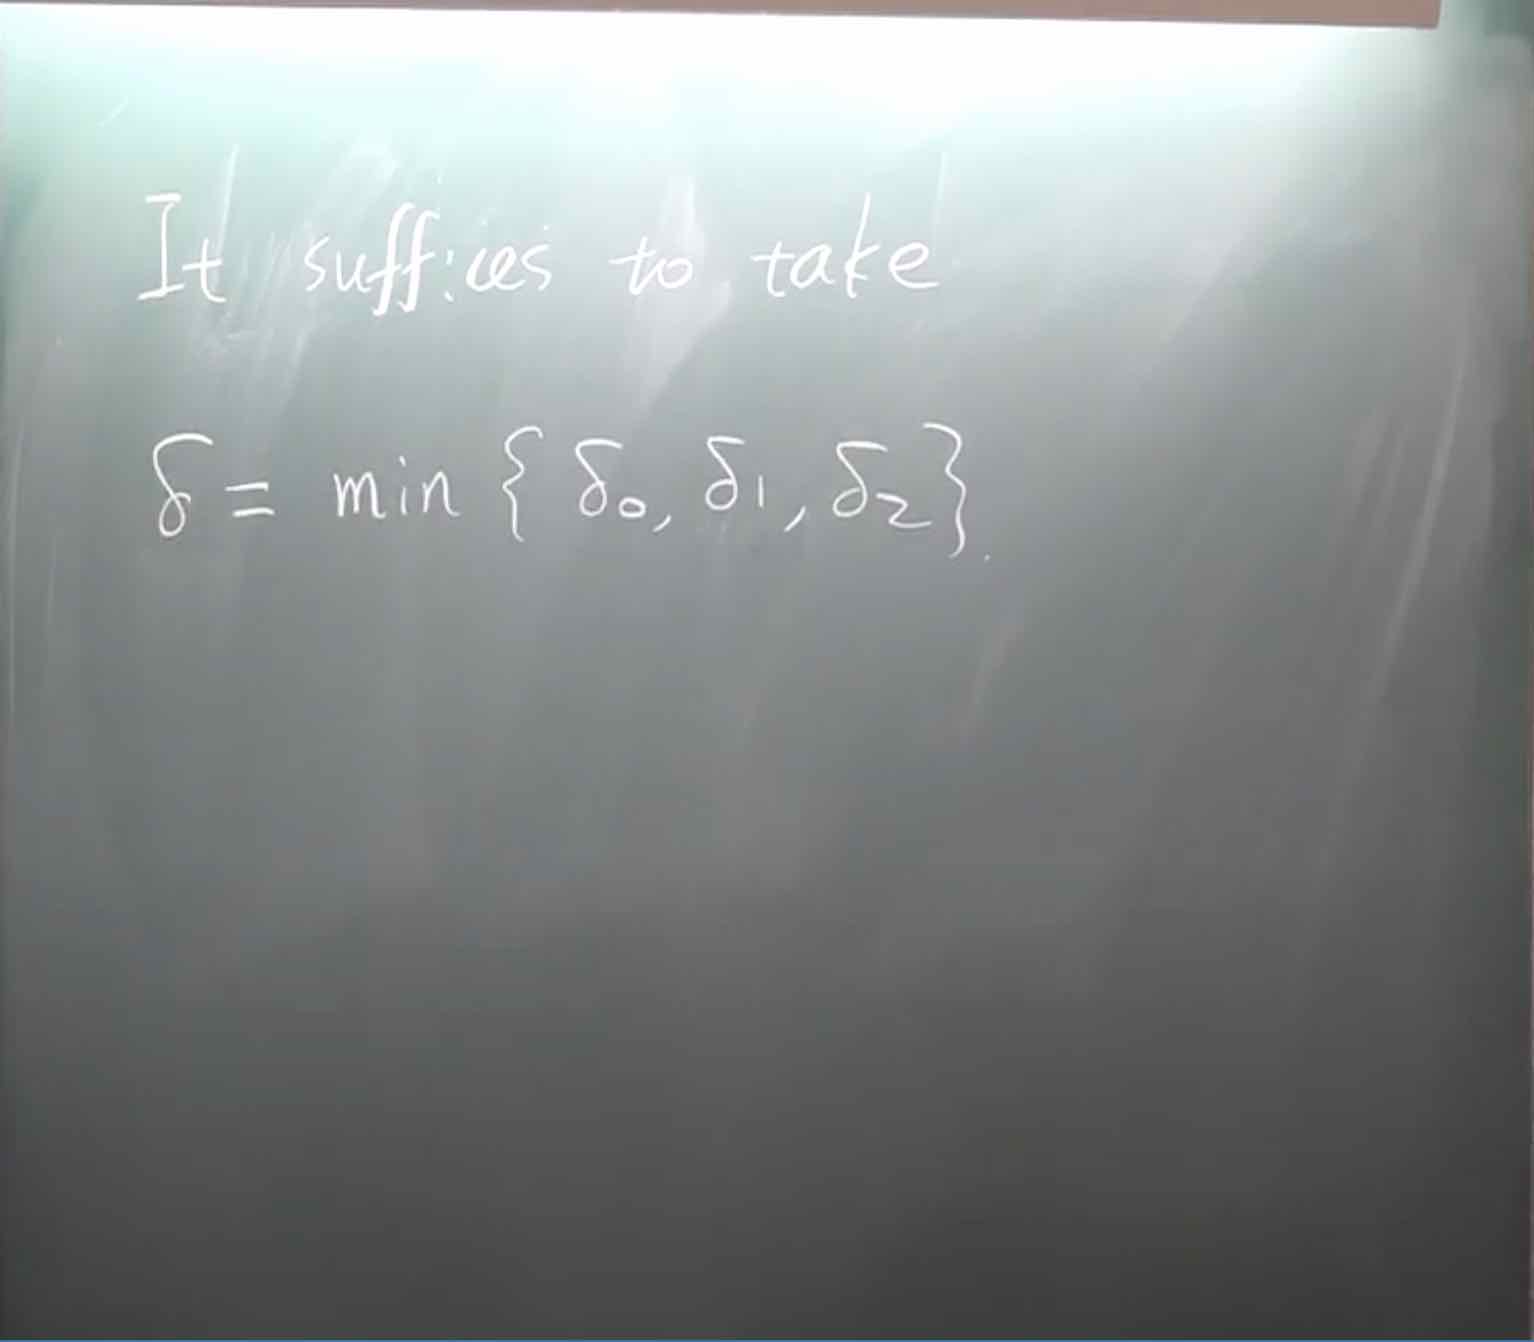 It suffices to take
δ = min { δ₀, δ₁, δ₂ }.